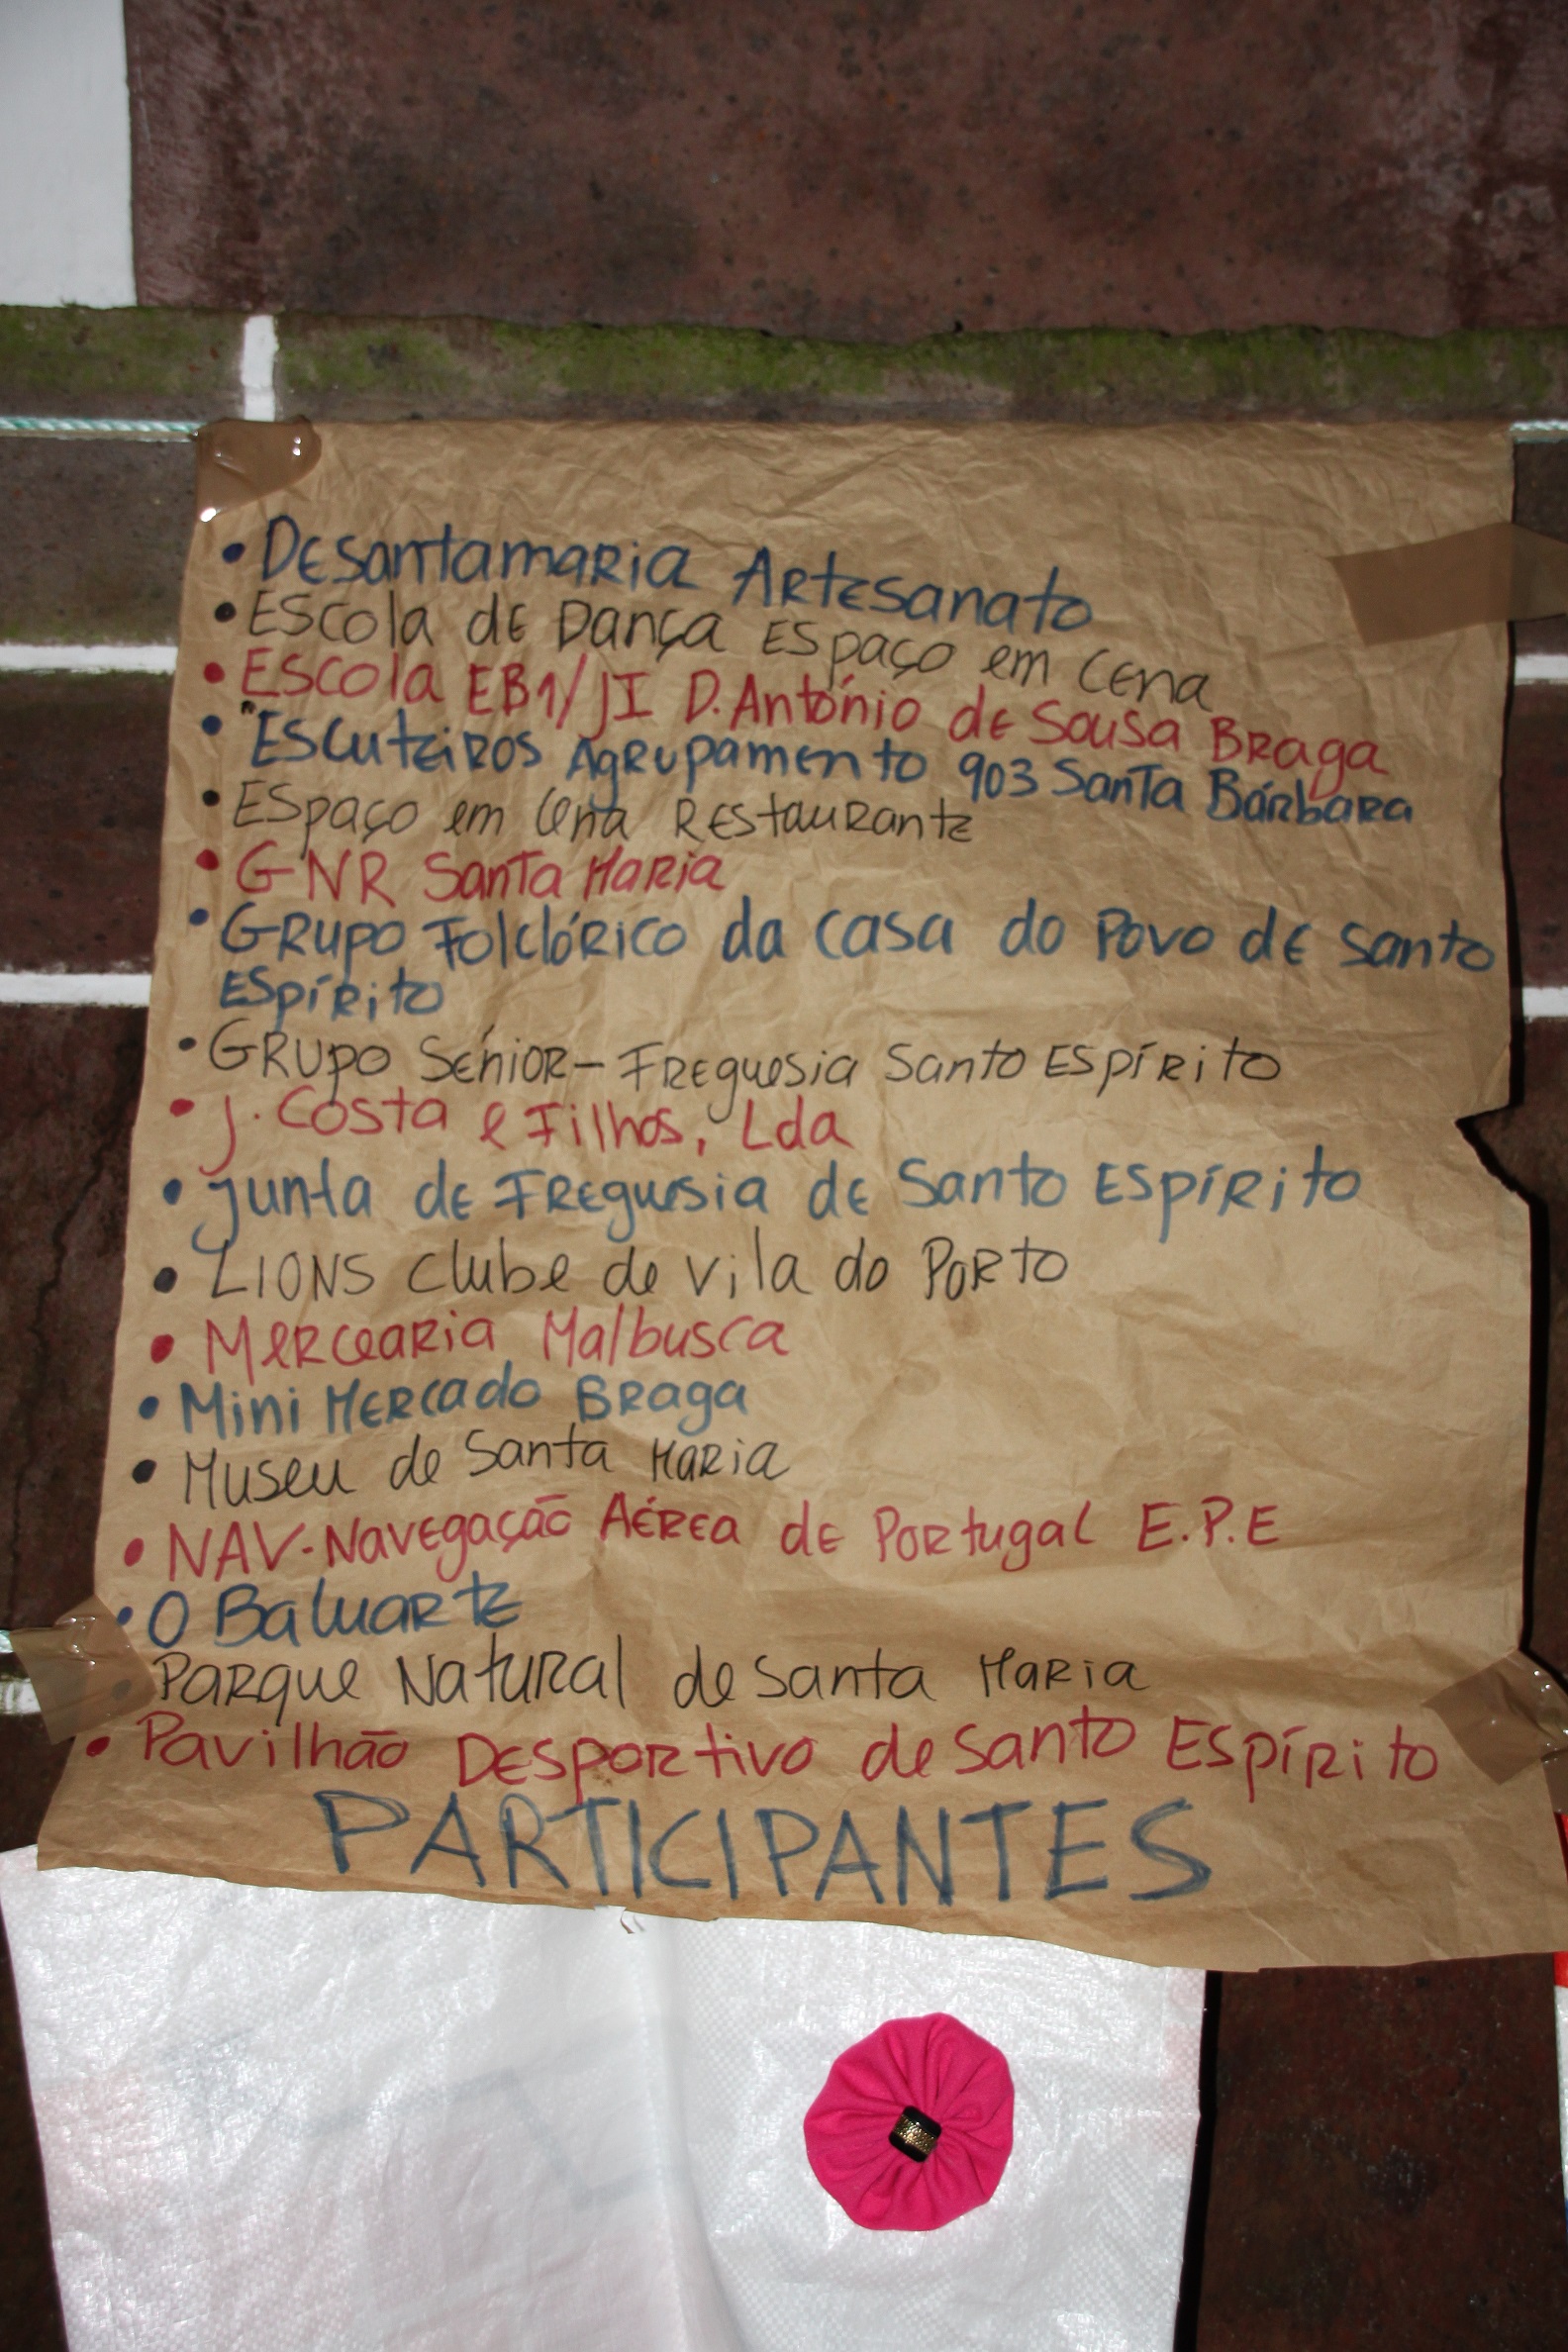 • Desantamaria Artesanato
• Escola de Dança Espaço em Cena
• Escola EB1/JI D. António de Sousa Braga
• Escuteiros Agrupamento 903 Santa Bárbara
• Espaço em Cena Restaurante
• GNR Santa Maria
• Grupo Folclórico da Casa do Povo de Santo
Espírito
• Grupo Sénior - Freguesia Santo Espírito
• J. Costa e Filhos, Lda
• Junta de Freguesia de Santo Espírito
• LIONS Clube de Vila do Porto
• Mercearia Malbusca
• Mini Mercado Braga
• Museu de Santa Maria
• NAV-Navegação Aérea de Portugal E.P.E
• O Baluarte
• Parque Natural de Santa Maria
• Pavilhão Desportivo de Santo Espírito
PARTICIPANTES